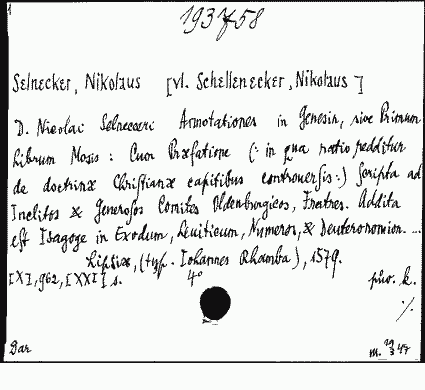 193758
Selnecker, Nikolaus [vl. Schellenecker, Nikolaus]
D. Nicolai Selnecceri Annotationes in Genesin, sive Primum
Librum Mosis: Cum Præfatione (: in qua ratio redditur
de doctrinæ Christianæ capitibus controuersis:) Scripta ad
Inclitos & Generosos Comites Oldenburgicos, Fratres. Addita
est Isagoge in Exodum, Leuiticum, Numeros, & Deuteronomion. ...
Lipsiæ, (typ. Iohannes Rhamba), 1579.
[X], 962, [XXI] s. 4° pův. k.
./.
Dar